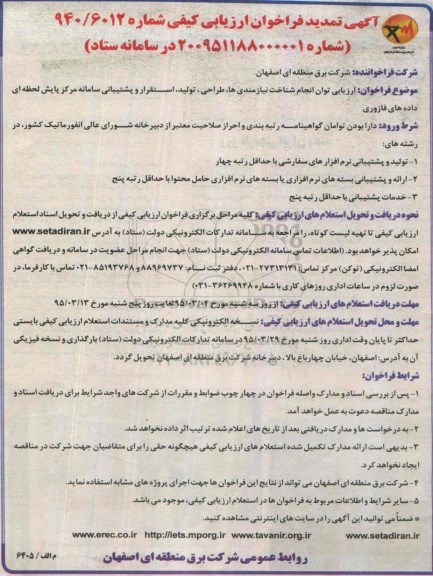 آگهی تمدید فراخوان ارزیابی کیفی شماره ۹۴۰/۶۰۱۲
(شماره ۲۰۰۹۵۱۱۸۸۰۰۰۰۰۱ در سامانه ستاد)
شرکت فراخواننده: شرکت برق منطقه ای اصفهان
موضوع فراخوان: ارزیابی توان انجام شناخت نیازمندی ها، طراحی، تولید، استقرار و پشتیبانی سامانه مرکز پایش لحظه ای
داده های فازوری
شرط ورود: دارا بودن توامان گواهینامه رتبه بندی و احراز صلاحیت معتبر از دبیرخانه شورای عالی انفورماتیک کشور، در
رشته های:
۱- تولید و پشتیبانی نرم افزار های سفارشی با حداقل رتبه چهار
۲- ارائه و پشتیبانی بسته های نرم افزاری یا بسته های نرم افزاری حامل محتوا با حداقل رتبه پنج
۳- خدمات پشتیبانی با حداقل رتبه پنج
نحوه دریافت و تحویل استعلام های ارزیابی کیفی: کلیه مراحل برگزاری فراخوان ارزیابی کیفی از دریافت و تحویل اسناد استعلام
ارزیابی کیفی تا تهیه لیست کوتاه، را مراجعه به سامانه تدارکات الکترونیکی دولت (ستاد) به آدرس www.setadiran.ir
امکان پذیر خواهد بود. (اطلاعات تماس سامانه الکترونیکی دولت (ستاد) جهت انجام مراحل عضویت در سامانه و دریافت گواهی
امضا الکترونیکی (توکن) مرکز تماس: ۲۷۳۱۳۱۳۱-۰۲۱، دفتر ثبت نام: ۸۸۹۶۹۷۳۷ و ۸۵۱۹۳۷۶۸-۰۲۱ تماس با کارفرما، در
صورت لزوم در ساعات اداری روزهای کاری با شماره ۳۶۲۶۹۹۲۸-۰۳۱)
مهلت دریافت استعلام های ارزیابی کیفی: از روز سه شنبه مورخ ۹۵/۰۳/۰۴ لغایت روز پنج شنبه مورخ ۹۵/۰۳/۱۳
مهلت و محل تحویل استعلام های ارزیابی کیفی: نسخه الکترونیکی کلیه مدارک و مستندات استعلام ارزیابی کیفی بایستی
حداکثر تا پایان وقت اداری روز شنبه مورخ ۹۵/۰۳/۲۹ در سامانه تدارکات الکترونیکی دولت (ستاد) بارگذاری و نسخه فیزیکی
آن به آدرس: اصفهان، خیابان چهارباغ بالا، دبیرخانه شرکت برق منطقه ای اصفهان تحویل گردد.
شرایط فراخوان:
۱- پس از بررسی اسناد و مدارک واصله فراخوان در چهار چوب ضوابط و مقررات از شرکت های واجد شرایط برای دریافت اسناد و
مدارک مناقصه دعوت به عمل خواهد آمد.
۲- به درخواست ها و مدارک دریافتی بعد از تاریخ های اعلام شده ترتیب اثر داده نخواهد شد.
۳- بدیهی است ارائه مدارک تکمیل شده استعلام های ارزیابی کیفی هیچگونه حقی را برای متقاضیان جهت شرکت در مناقصه
ایجاد نخواهد کرد.
۴- شرکت برق منطقه ای اصفهان می تواند از نتایج این فراخوان ها جهت اجرای پروژه های مشابه استفاده نماید.
۵- سایر شرایط و اطلاعات مربوط به فراخوان ها در استعلام ارزیابی کیفی، موجود می باشد.
* ضمناً می توانید این آگهی را در سایت های اینترنتی مشاهده کنید.
www.erec.co.ir http://iets.mporg.ir www.tavanir.org.ir www.setadiran.ir
روابط عمومی شرکت برق منطقه ای اصفهان
م الف / ۶۴۰۵